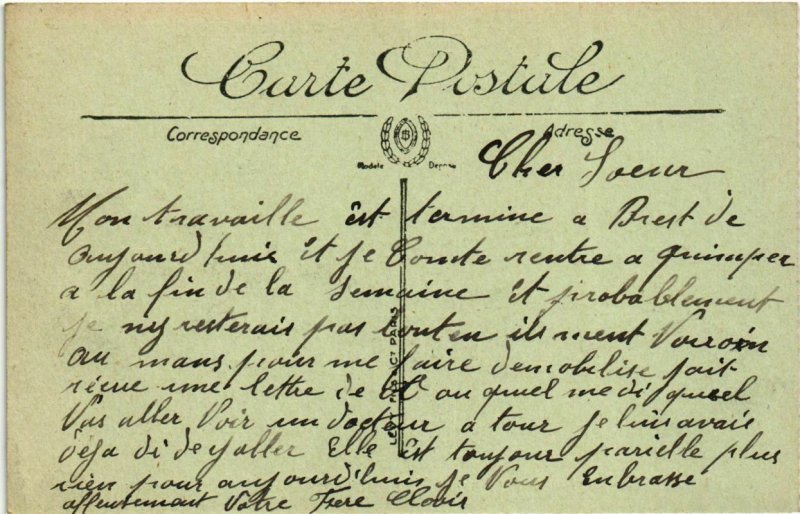 Carte Postale
Correspondance
Adresse
Modèle Déposé
Cher Soeur
Mon travaille êst termine a Brest de
aujourd'huis êt je Comte rentre a quimper
a la fin de la Semaine êt probablement
je ny resterais pas lonten ils ment Voiron
au mans pour me faire demobilise jait
reçue une lettre de el ou quel me di quel
Vas aller Voir un docteur a tour je lui avais
deja di de y aller Elle êst toujour parielle plus
rien pour aujourd'huis je Vous Enbrasse
affeutsement Votre Frere Clovis